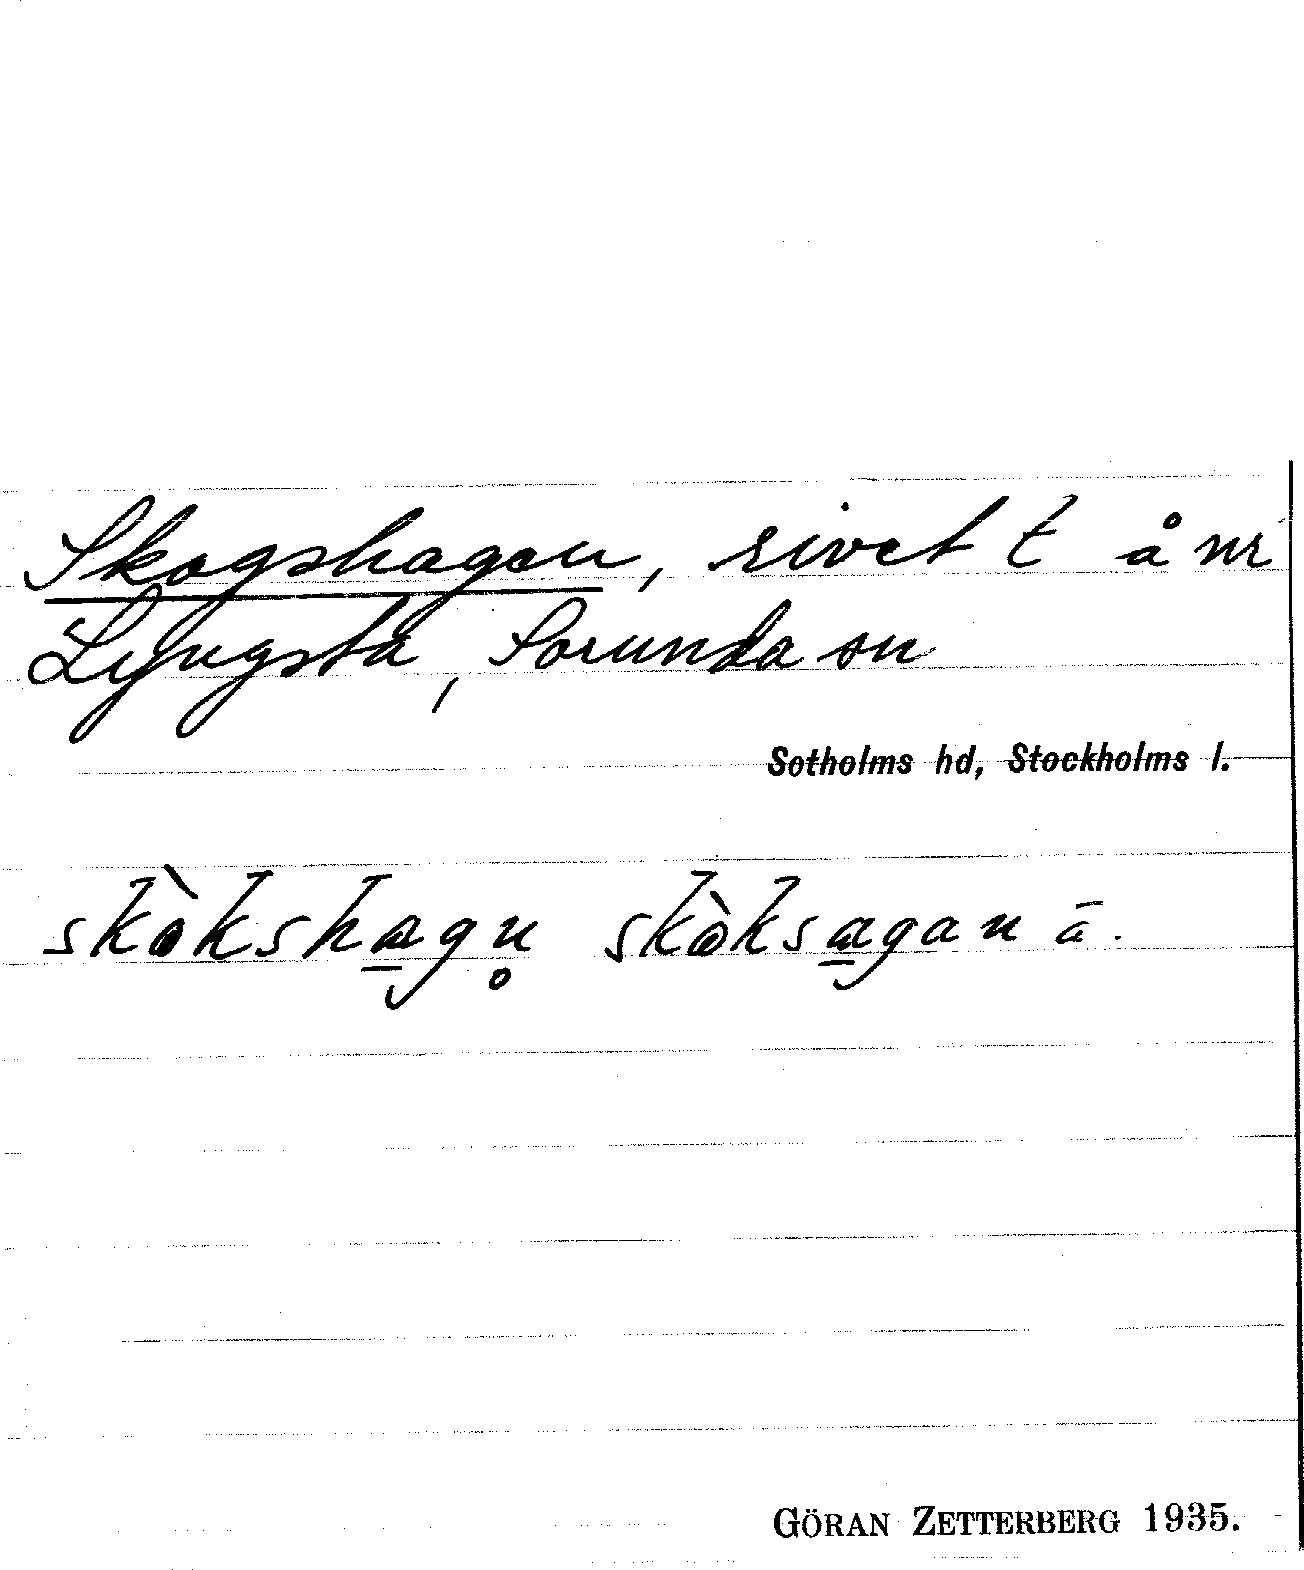 Skogshagen, rivet t å nr
Lyngsta, Sorunda sn
Sotholms hd, Stockholms l.
skòkshagn̥ skòksagan ā.
GÖRAN ZETTERBERG 1935.